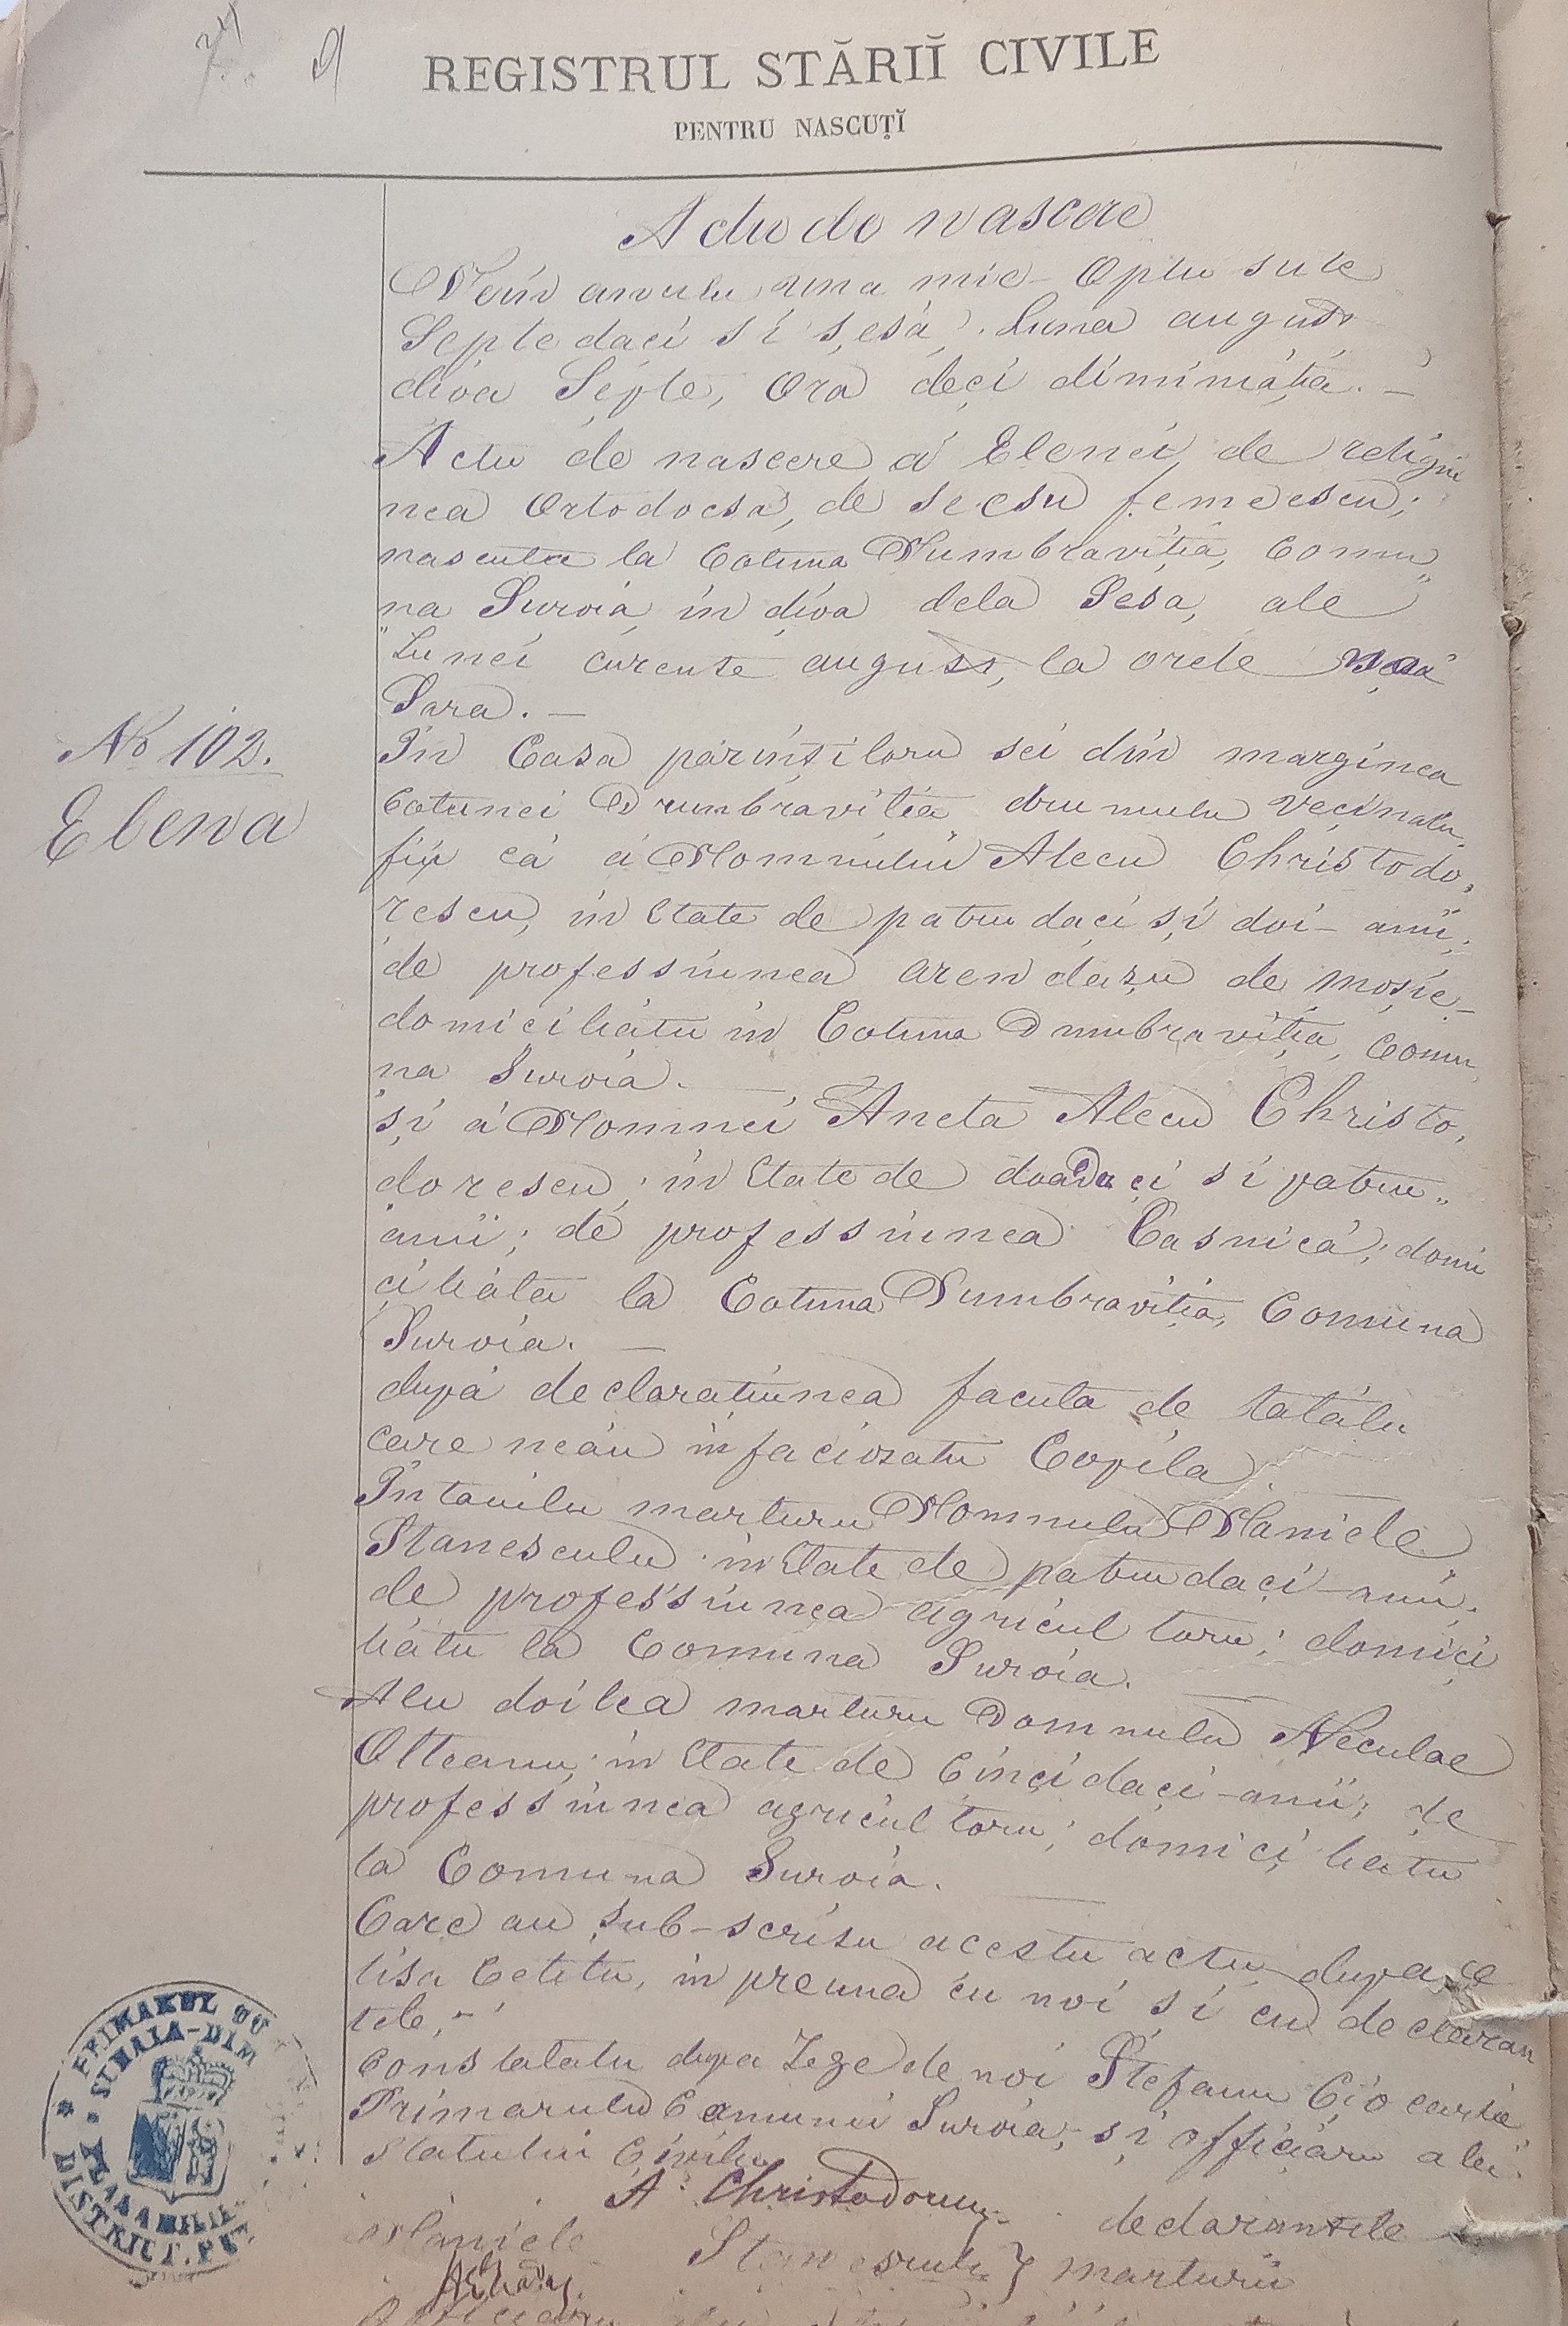 REGISTRUL STĂRIĬ CIVILE
PENTRU NASCUȚĬ
Actu de nascere
Din anulu una mie Optu sute
Șepte daci si șesă, Luna august
dioa Șepte, Ora deci diminiația. –
Actu de nascere a Elenei, de religiu
nea Ortodocsa, de secsu femeescu;
nascuta la Cotuna Dumbravitia, Comu
na Suroia in dioa dela Șesa, ale
Lunei curente august, la orele
Sara. –
No 102.
Elena
In Casa părințiloru sei din marginea
Cotunei Drumbravitia drumulu vecinalu,
fiia ca a Domnului Alecu Christodo,
rescu, in Etate de patru daci și doi – anii;
de professiunea arendașu de moșie –
domiciliatu in Cotuna Dumbravitia, Comu,
na Suroia. –
și a Domnei Aneta Alecu Christo,
dorescu; in Etate de doa Daci si patru„
anii; de professiunea Casnică; domi
ciliata la Cotuna Dumbravitia, Comuna
Suroia. –
după declarațiunea facuta de tatălu
care neau infaciosatu Copila.
Intaiulu marturu Domnulu Daniele
Stanesculu in Etate de patru daci – anii;
de professiunea agricultoru; domici
liatu la Comuna Suroia. –
Alu doilea marturu Domnulu Neculae
Olteanu; in Etate de Cinci daci – anii; de
professiunea agricultoru; domiciliatu
la Comuna Suroia.
Care au sub-scrisu acestu actu, dupa ce
lisa Cetitu, inpreuna cu noi si cu declaran
tele, –
Constatatu dupa Lege de noi Ștefanu Ciocarlia
Primarulu Comunei Suroia, și officiaru alu
Statului Civilu
A. Christodorescu declarantele
Daniele Stanesculu } marturii
PRIMARUL
DISTRICT. P